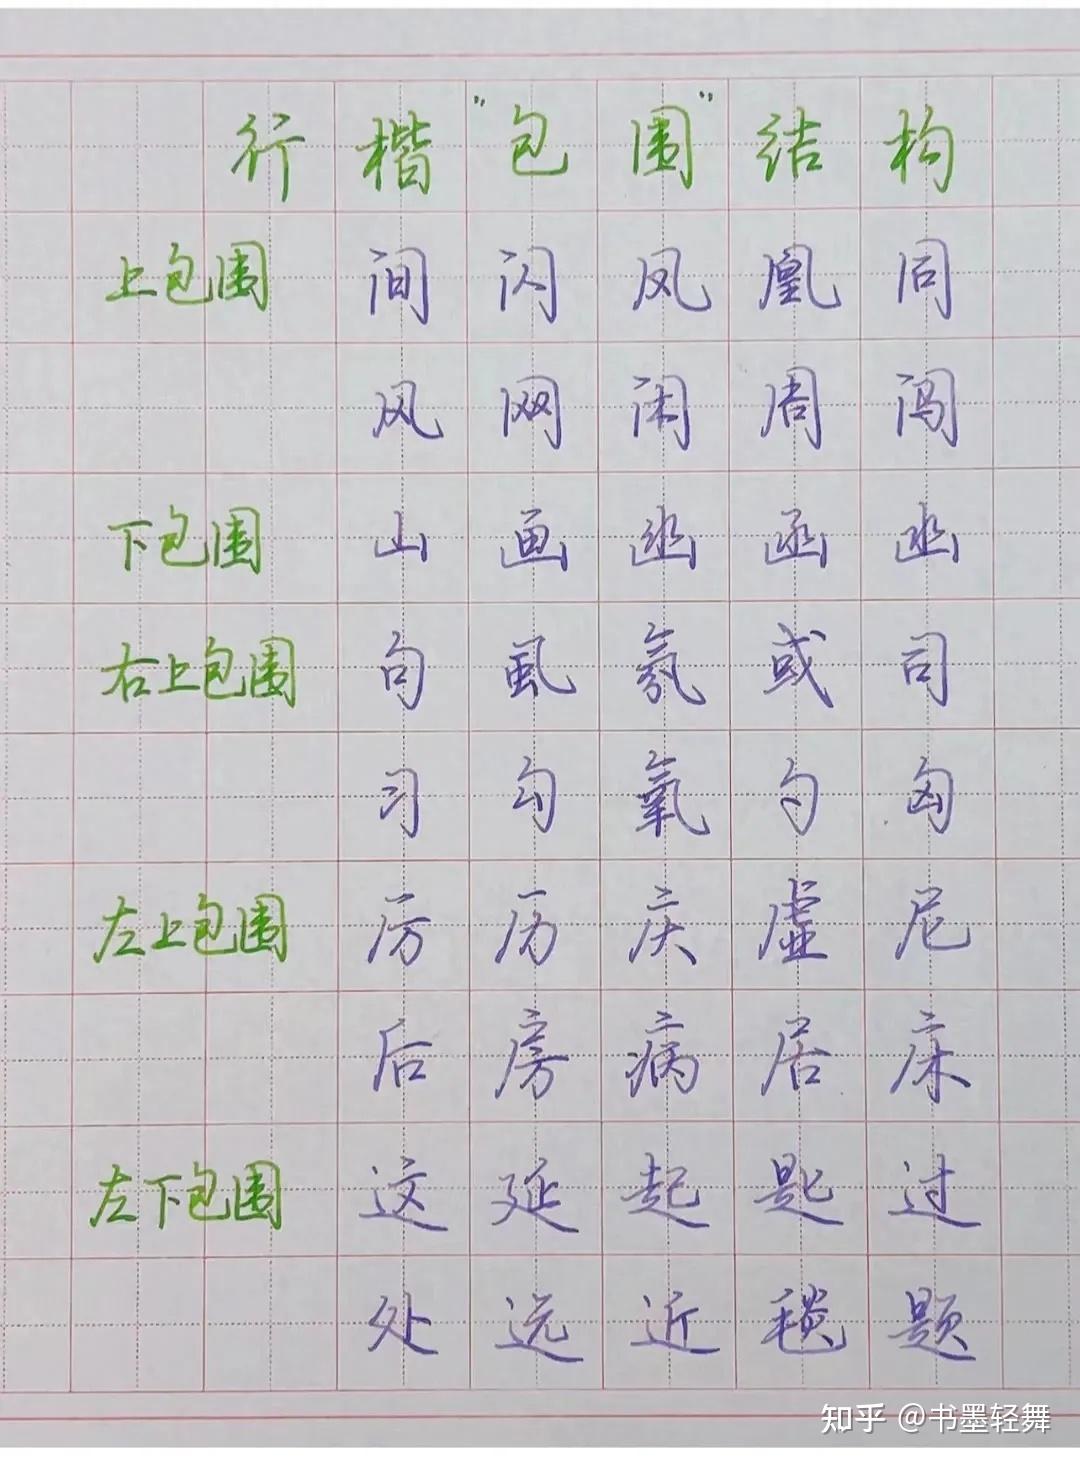 行楷"包围"结构
上包围 间 闪 凤 凰 同
风 网 闲 周 闯
下包围 山 画 幽 函 凼
右上包围 句 虱 氛 或 司
习 勾 氧 勺 匈
左上包围 厉 历 庆 虚 尼
后 房 病 居 床
左下包围 这 延 起 匙 过
处 远 近 毯 题
知乎 @书墨轻舞